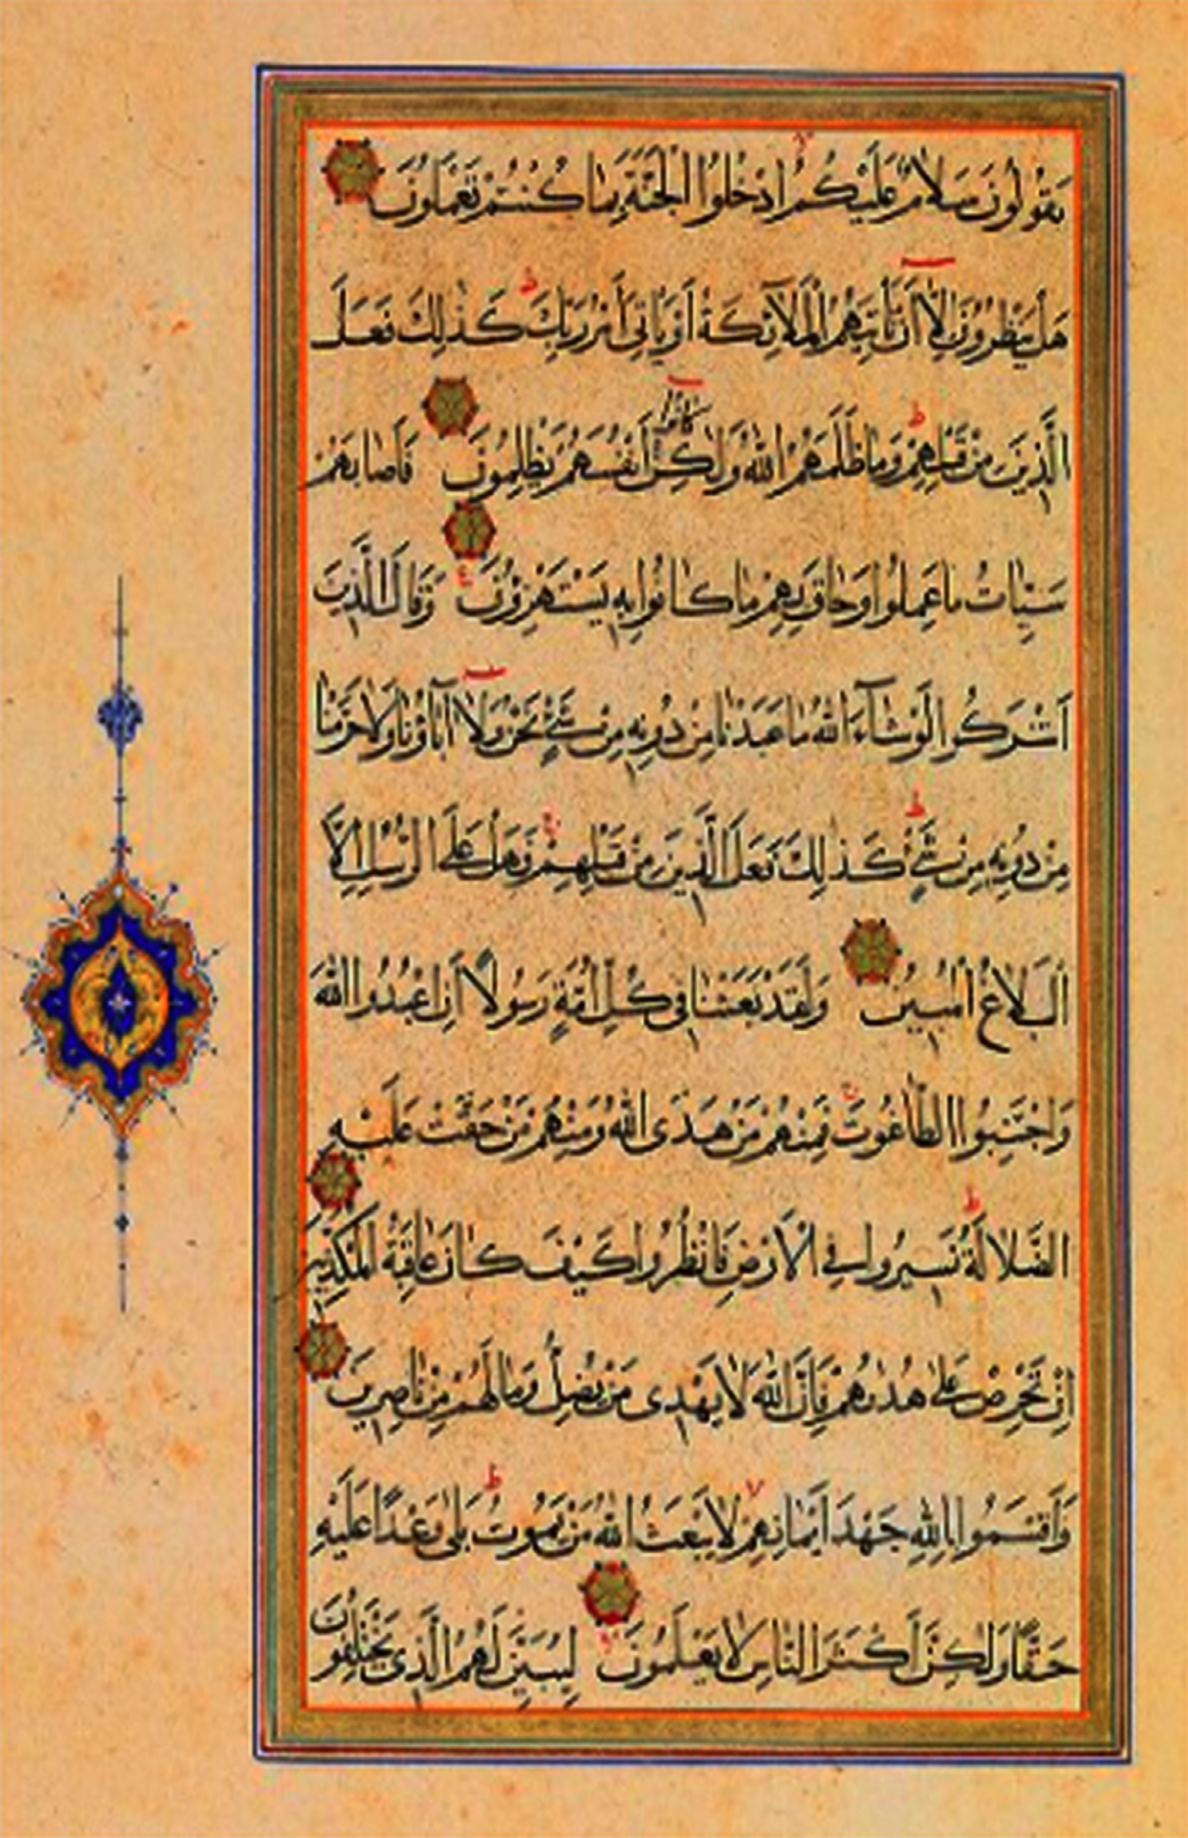 يَقُولُونَ سَلَامٌ عَلَيْكُمُ ادْخُلُوا الْجَنَّةَ بِمَا كُنْتُمْ تَعْمَلُونَ
هَلْ يَنْظُرُونَ إِلَّا أَنْ تَأْتِيَهُمُ الْمَلَآئِكَةُ أَوْ يَأْتِيَ أَمْرُ رَبِّكَ كَذٰلِكَ فَعَلَ
الَّذِينَ مِنْ قَبْلِهِمْ وَمَا ظَلَمَهُمُ اللّٰهُ وَلٰكِنْ كَانُوا أَنْفُسَهُمْ يَظْلِمُونَ فَأَصَابَهُمْ
سَيِّئَاتُ مَا عَمِلُوا وَحَاقَ بِهِمْ مَا كَانُوا بِهِ يَسْتَهْزِؤُنَ وَقَالَ الَّذِينَ
أَشْرَكُوا لَوْ شَآءَ اللّٰهُ مَا عَبَدْنَا مِنْ دُونِهِ مِنْ شَيْءٍ نَحْنُ وَلَا آبَاؤُنَا وَلَا حَرَّمْنَا
مِنْ دُونِهِ مِنْ شَيْءٍ كَذٰلِكَ فَعَلَ الَّذِينَ مِنْ قَبْلِهِمْ فَهَلْ عَلَى الرُّسُلِ إِلَّا
الْبَلَاغُ الْمُبِينُ وَلَقَدْ بَعَثْنَا فِي كُلِّ أُمَّةٍ رَسُولًا أَنِ اعْبُدُوا اللّٰهَ
وَاجْتَنِبُوا الطَّاغُوتَ فَمِنْهُمْ مَنْ هَدَى اللّٰهُ وَمِنْهُمْ مَنْ حَقَّتْ عَلَيْهِ
الضَّلَالَةُ فَسِيرُوا فِي الْأَرْضِ فَانْظُرُوا كَيْفَ كَانَ عَاقِبَةُ الْمُكَذِّبِينَ
إِنْ تَحْرِصْ عَلَى هُدٰىهُمْ فَإِنَّ اللّٰهَ لَا يَهْدِي مَنْ يُضِلُّ وَمَا لَهُمْ مِنْ نَاصِرِينَ
وَأَقْسَمُوا بِاللّٰهِ جَهْدَ أَيْمَانِهِمْ لَا يَبْعَثُ اللّٰهُ مَنْ يَمُوتُ بَلَى وَعْدًا عَلَيْهِ
حَقًّا وَلٰكِنَّ أَكْثَرَ النَّاسِ لَا يَعْلَمُونَ لِيُبَيِّنَ لَهُمُ الَّذِي يَخْتَلِفُونَ